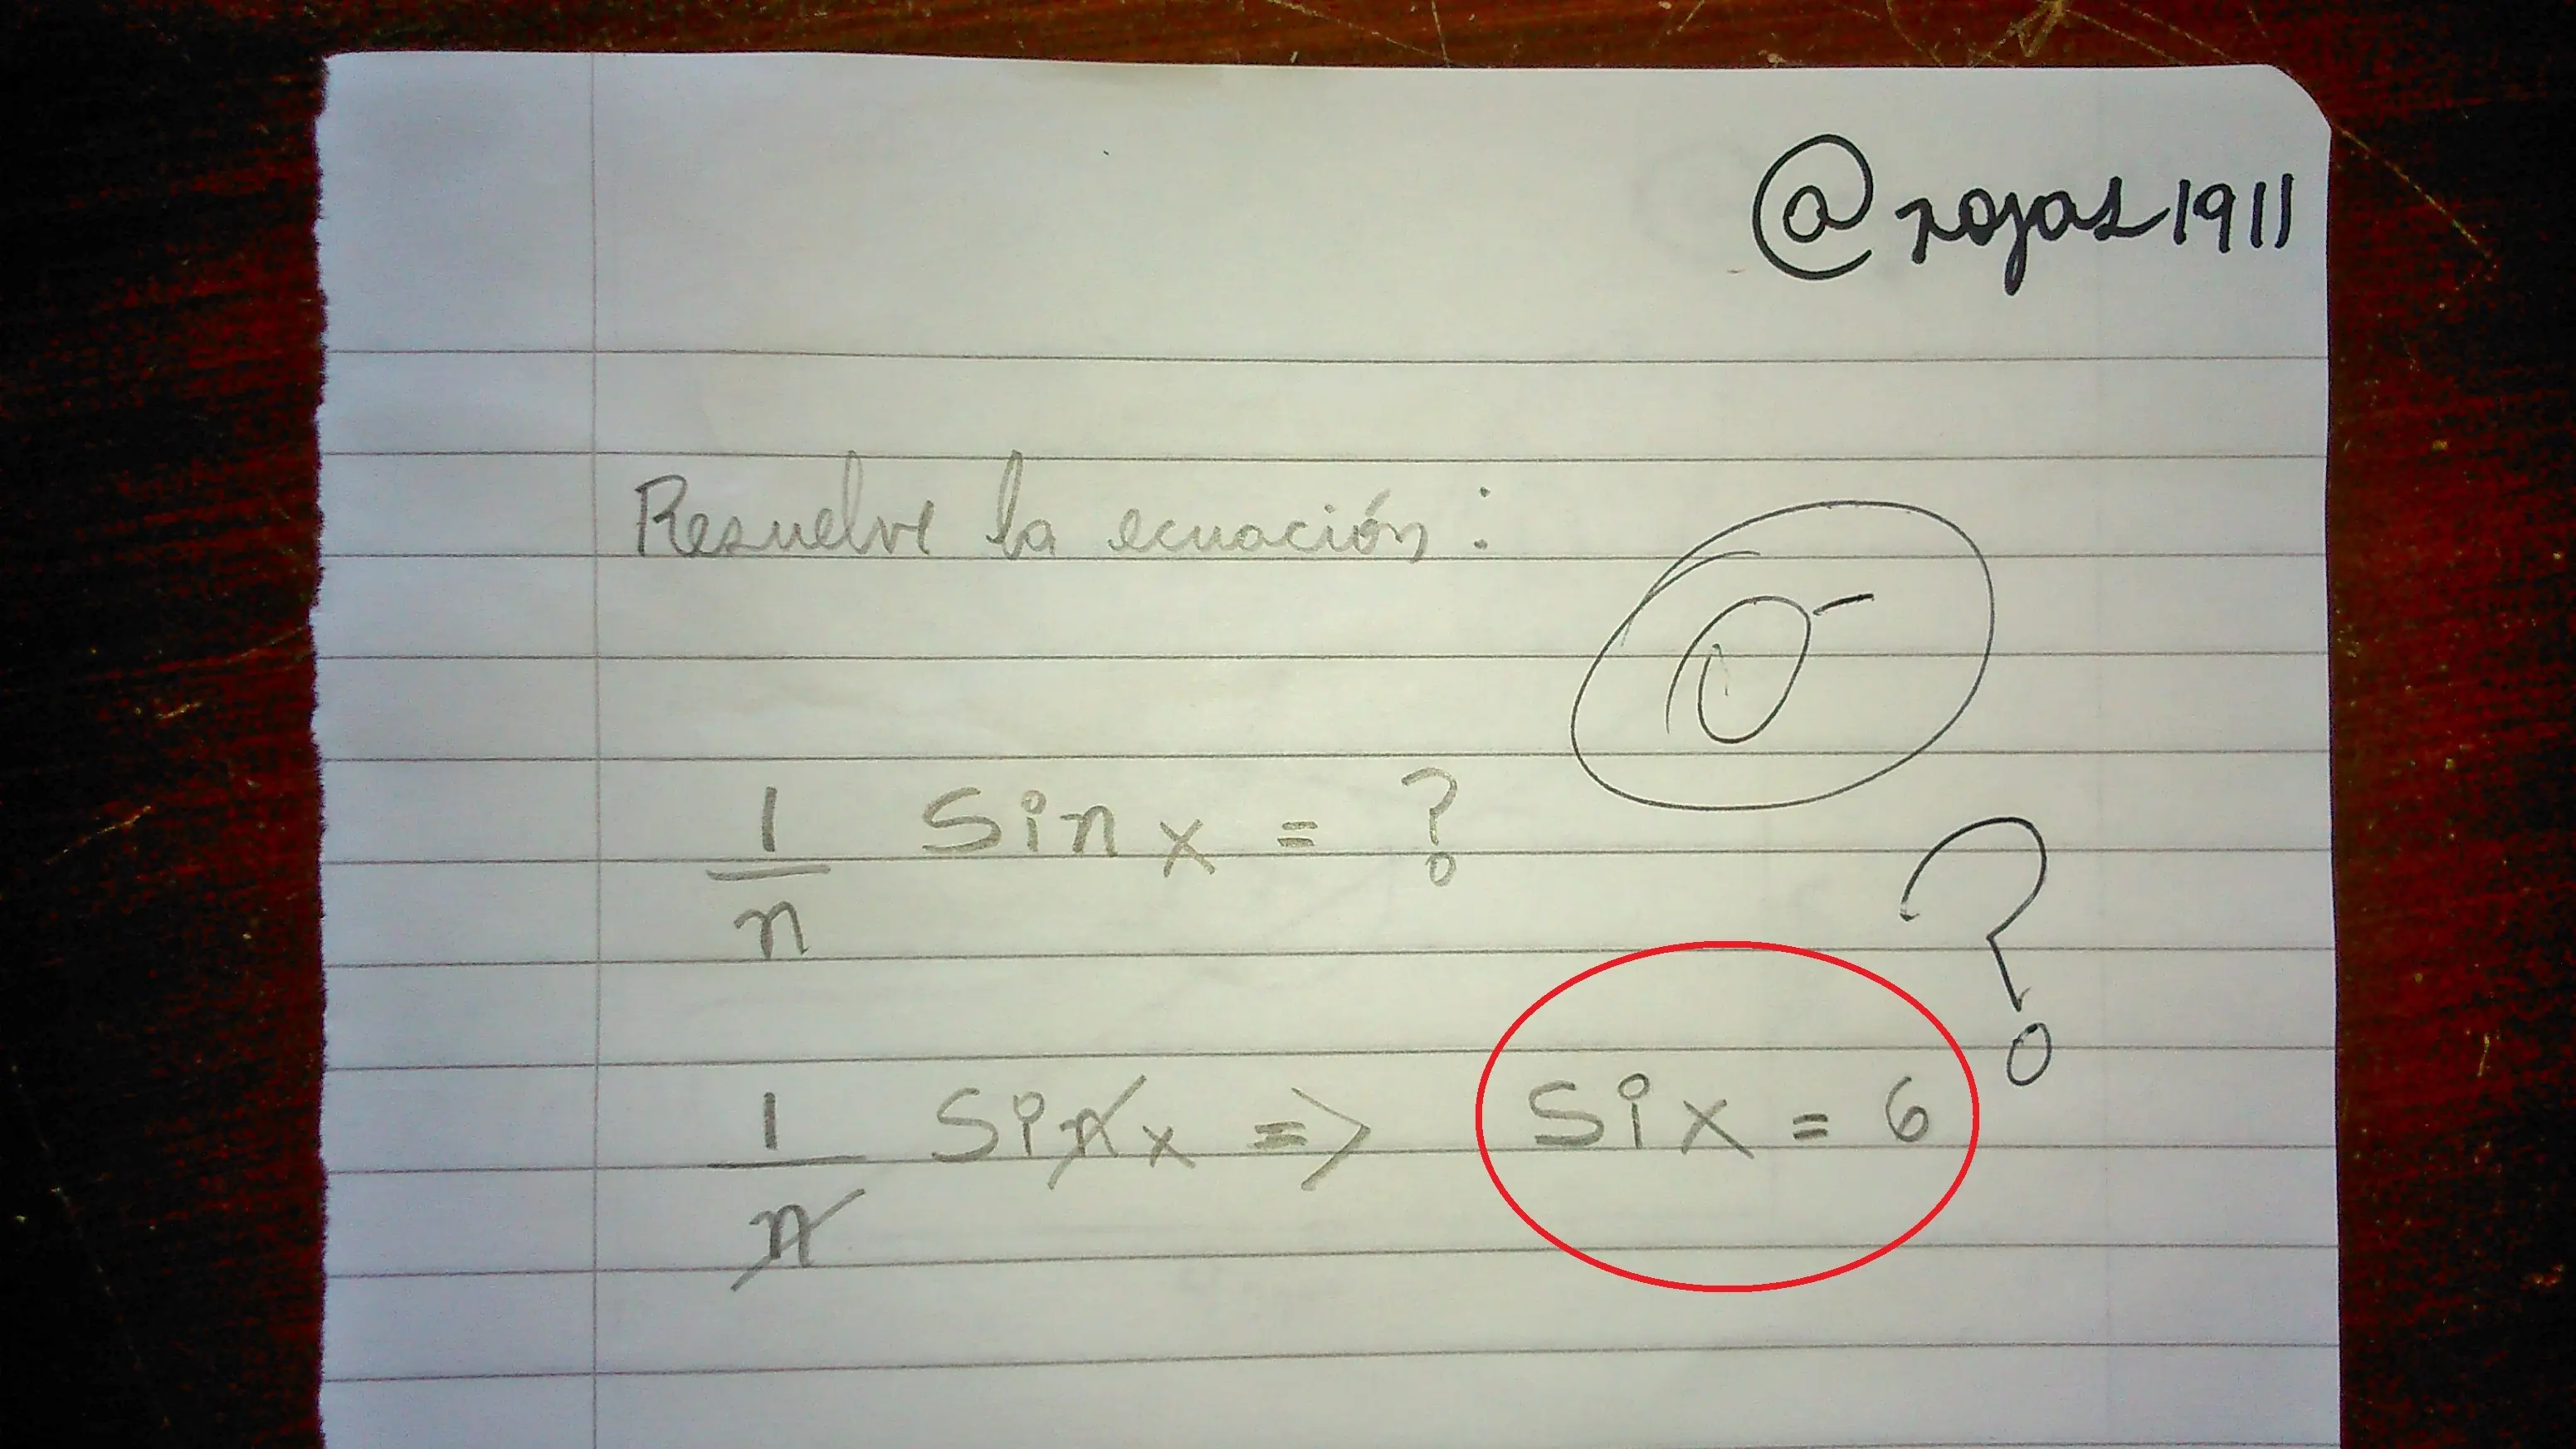 @rojas1911
Resuelve la ecuación:
0-
1/n Sin x = ?
?
1/n Sin x => Six = 6